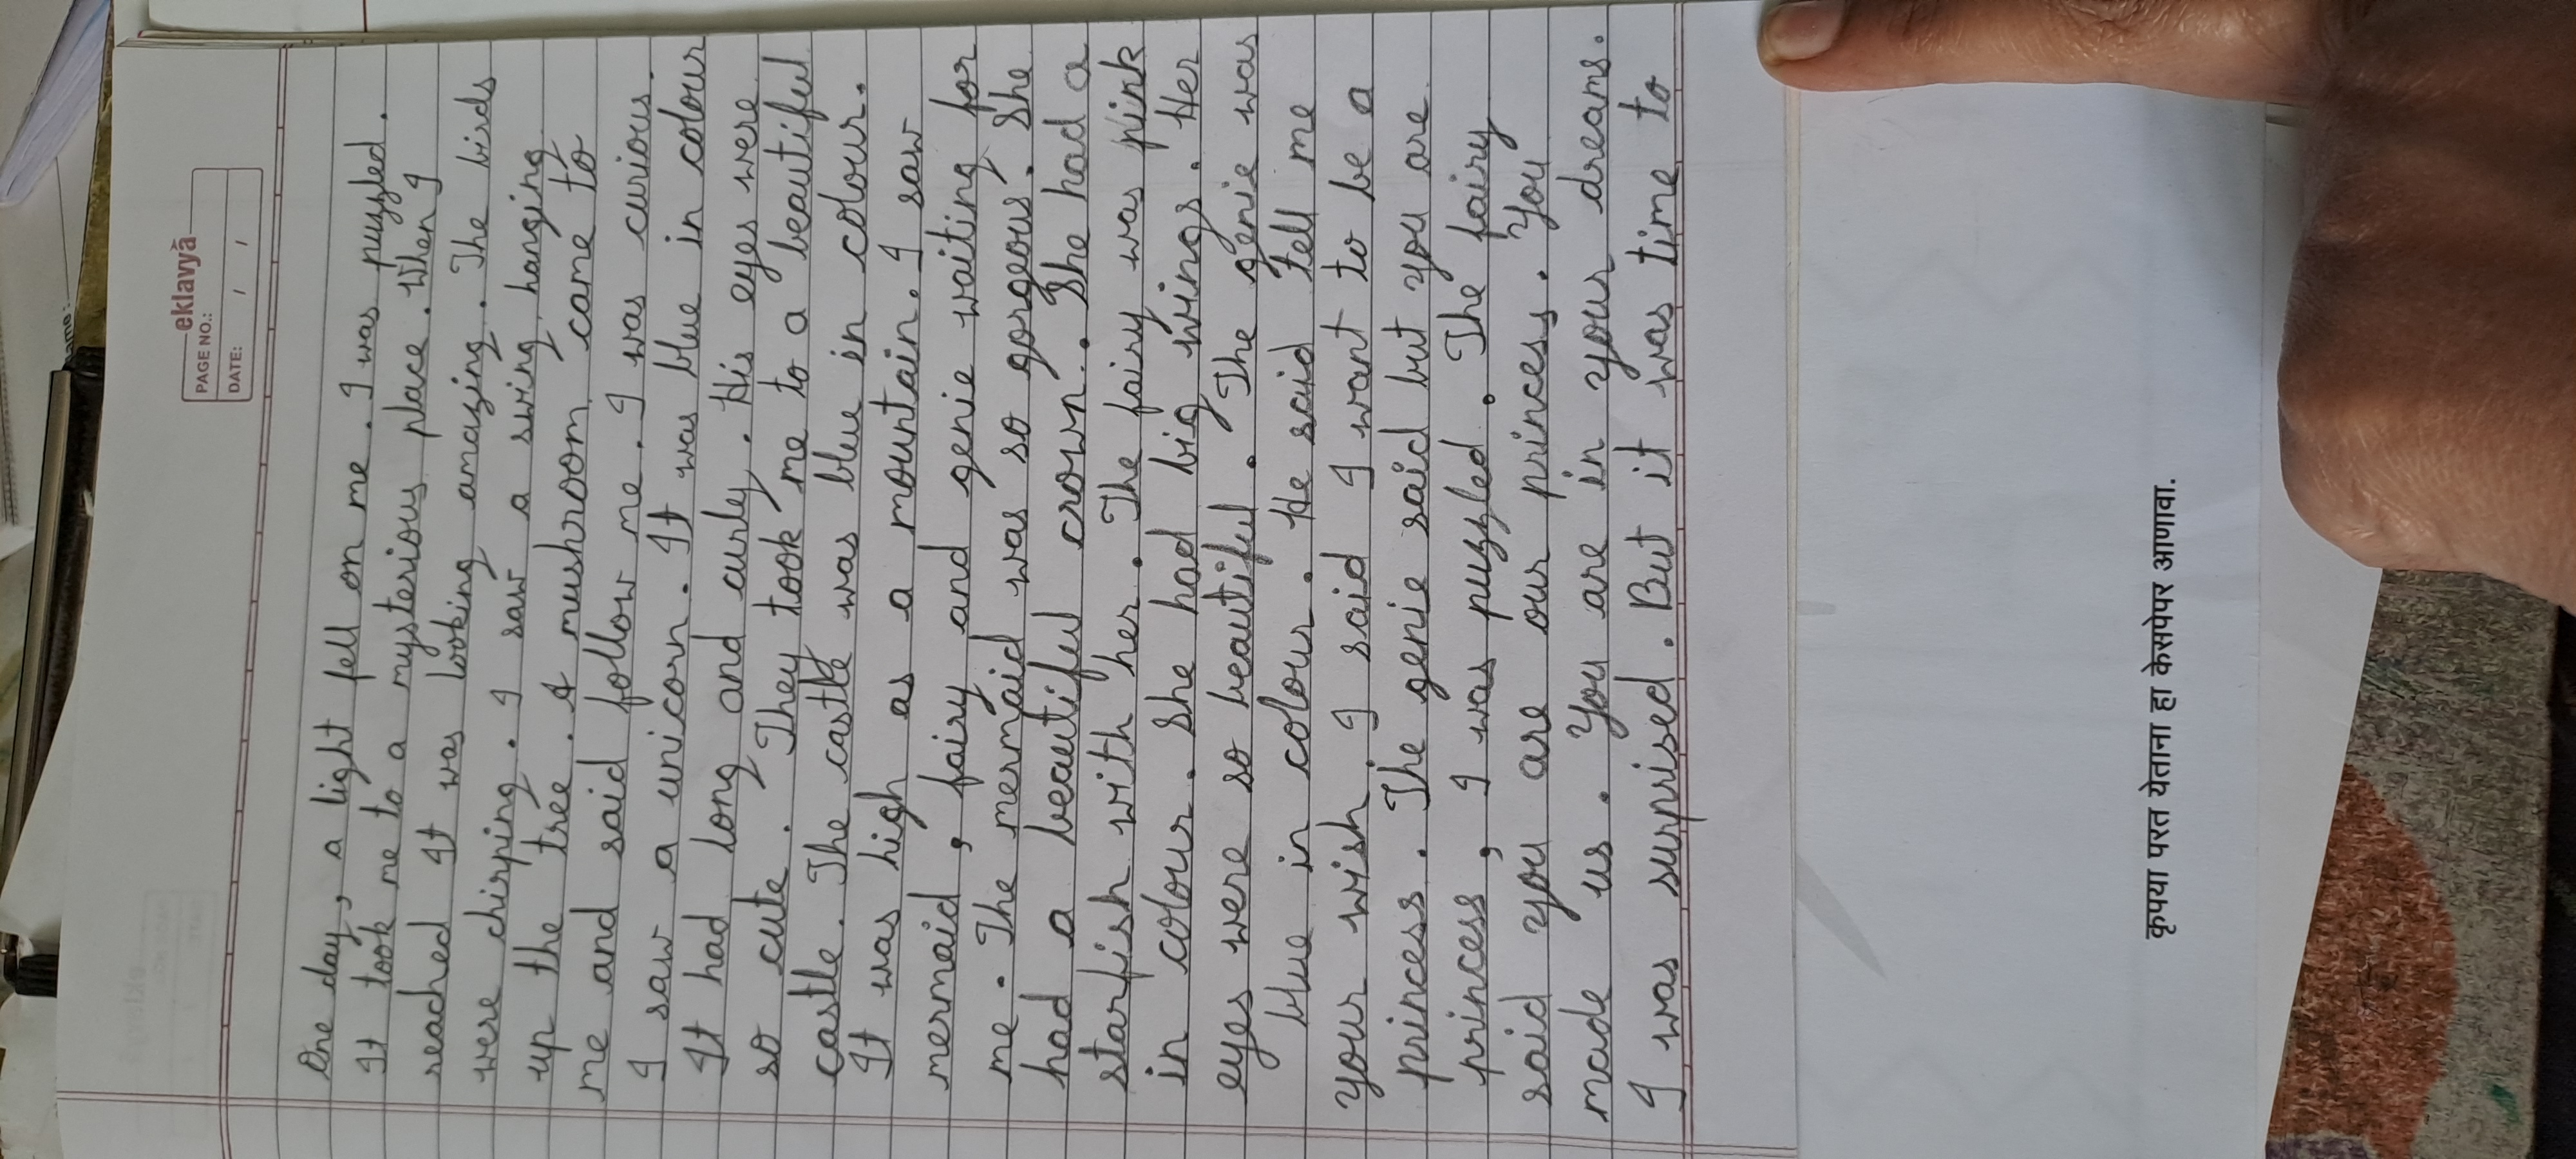 eklavya
PAGE NO.:
DATE: / /
One day, a light fell on me. I was puzzled.
It took me to a mysterious place. When I
reached it was looking amazing. The birds
were chirping. I saw a swing hanging
up the tree. A mushroom came to
me and said follow me. I was curious.
I saw a unicorn. It was blue in colour
It had long and curly. His eyes were
so cute. They took me to a beautiful
castle. The castle was blue in colour.
It was high as a mountain. I saw
mermaid, fairy and genie waiting for
me. The mermaid was so gorgeous. She
had a beautiful crown. She had a
starfish with her. The fairy was pink
in colour. She had big wings. Her
eyes were so beautiful. The genie was
blue in colour. He said tell me
your wish. I said I want to be a
princess. The genie said but you are
princess, I was puzzled. The fairy
said you are our princess. You
made us. You are in your dreams.
I was surprised. But it was time to
कृपया परत येताना हा केसपेपर आणावा.